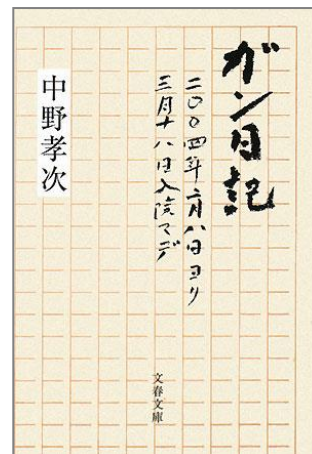 ガン日記
二〇〇四年二月八日ヨリ
三月十八日入院マデ
中野孝次
文春文庫